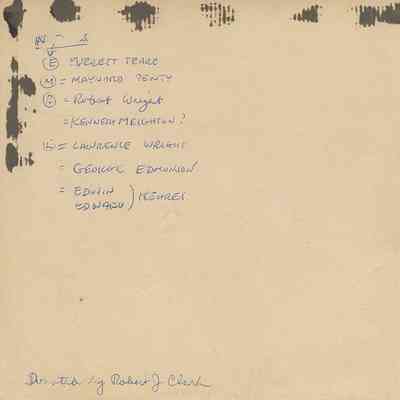 (E) EVERETT
(M) = MAYNARD PENTY
= Robert Wright
= KENNETH MEIGHTON?
= LAWRENCE WRIGHT
= GEORGE EDMUNSON.
= EDWIN
EDWARD )
Donated by Robert J Clark